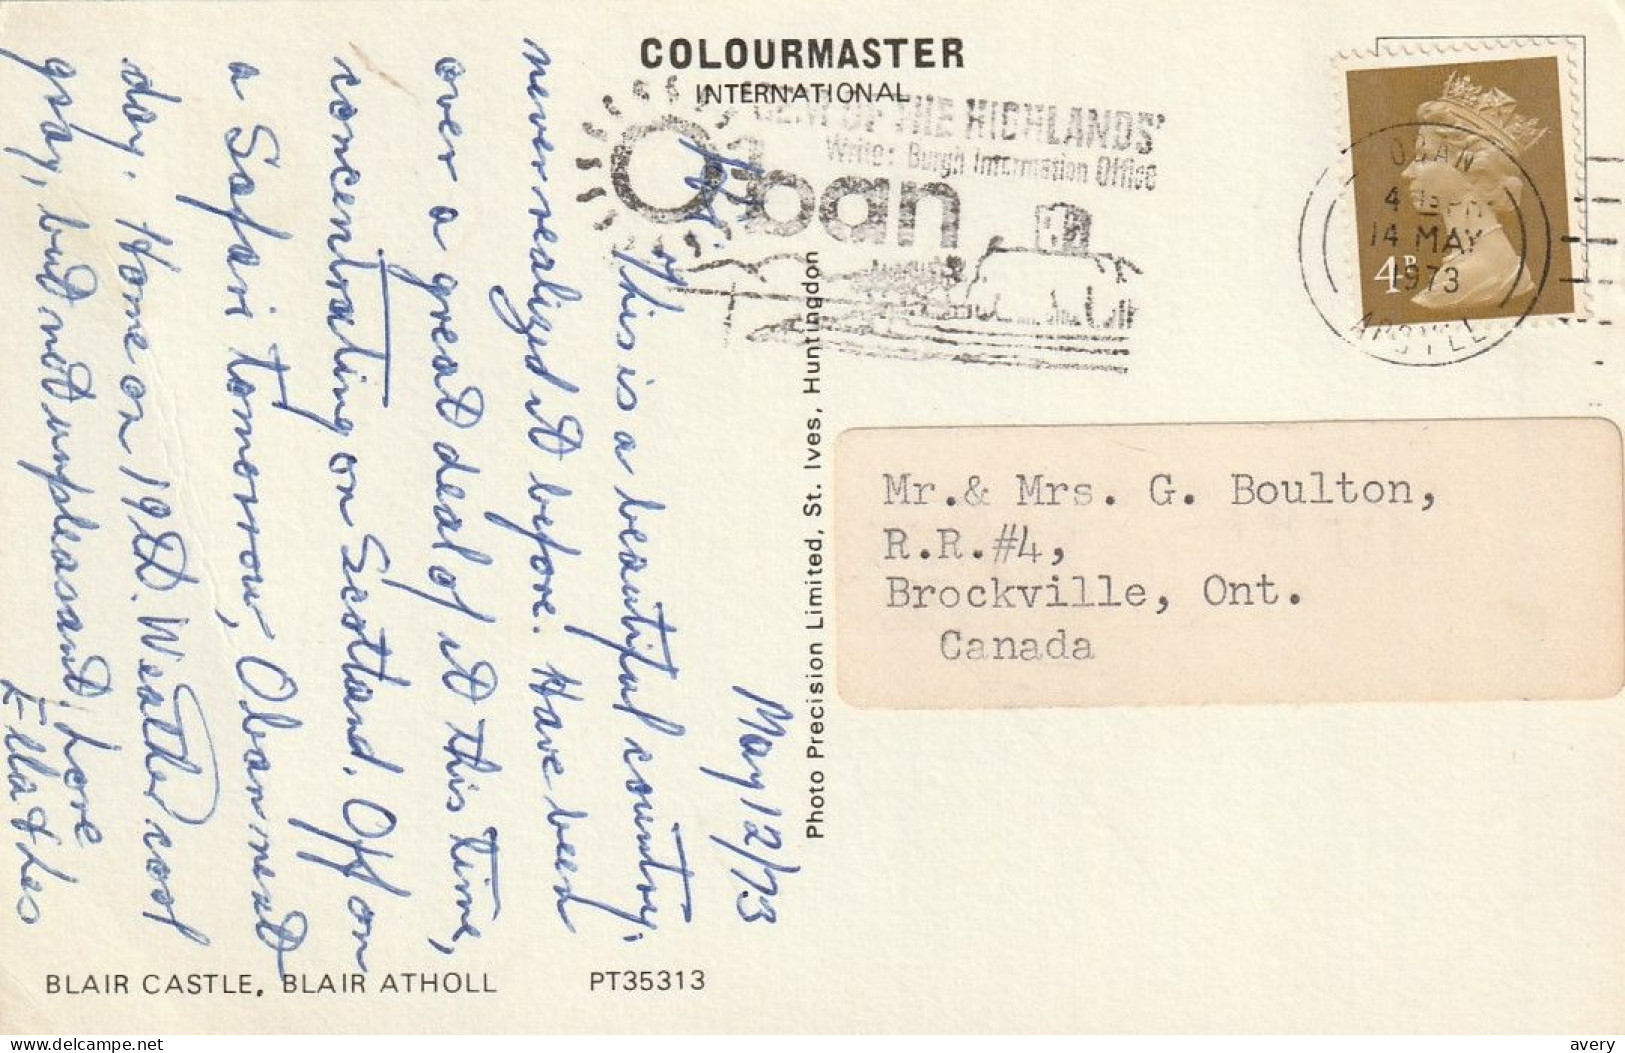 COLOURMASTER
INTERNATIONAL
'GEM OF THE HIGHLANDS'
Write: Burgh Information Office
Oban
OBAN
4 15 PM
14 MAY
1973
ARGYLL
4P
May 12/73
This is a beautiful country,
never realized it before. Have been
over a great deal of it this time,
concentrating on Scotland. Off on
a Safari tomorrow, Oban next
day. Home on 19th. Weather cool
gray, but not unpleasant. Love
Ella & Les
Photo Precision Limited, St. Ives, Huntingdon
Mr.& Mrs. G. Boulton,
R.R.#4,
Brockville, Ont.
Canada
BLAIR CASTLE, BLAIR ATHOLL PT35313
delcampe.net
avery